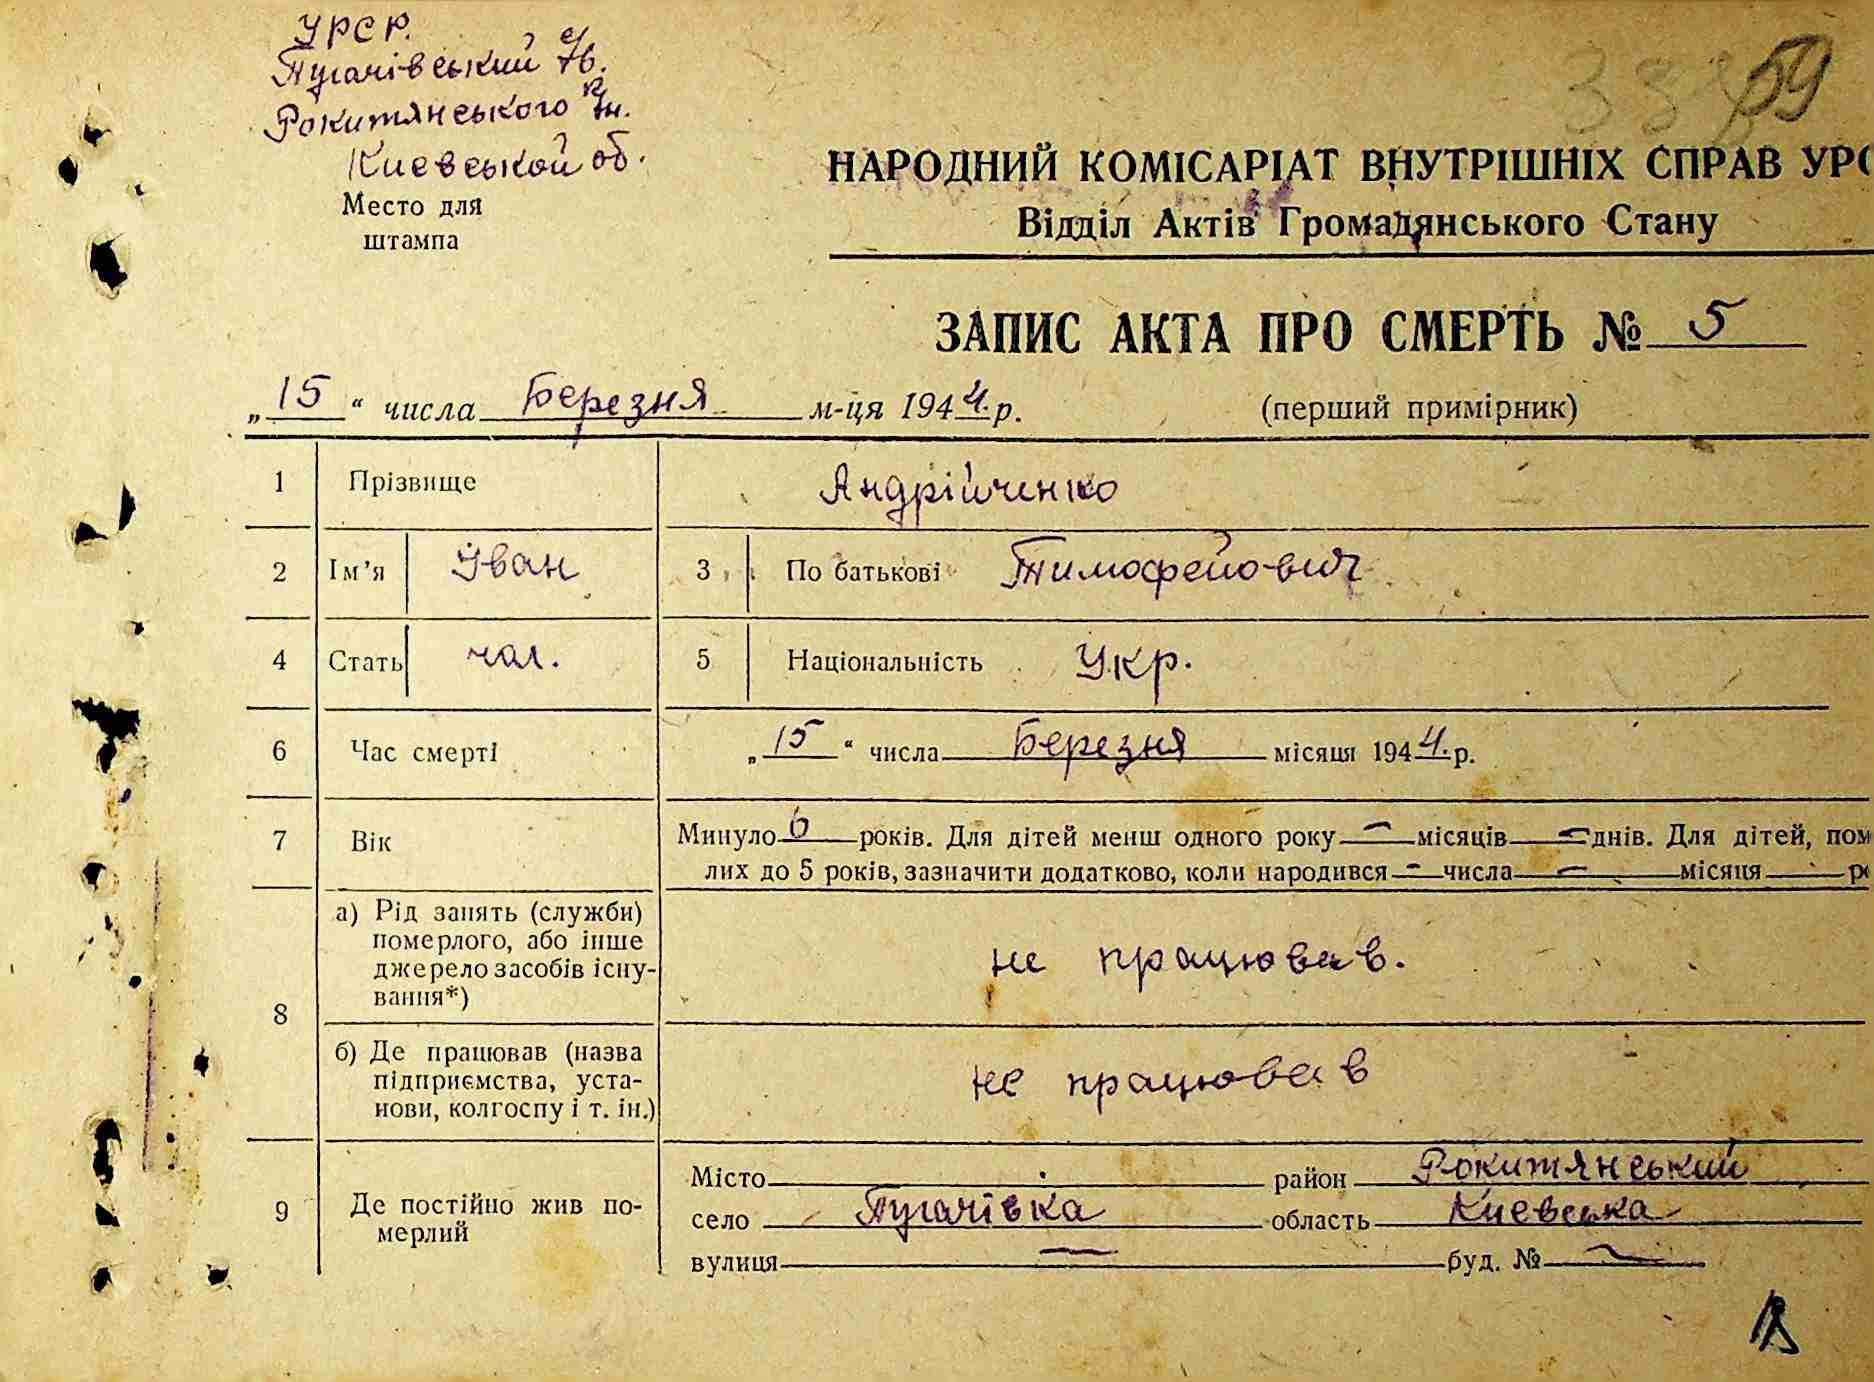 УРСР.
Пугачівський с/в.
Рокитянського р/н.
Киевськой об.
Место для
штампа
59
НАРОДНИЙ КОМІСАРІАТ ВНУТРІШНІХ СПРАВ УРС
Відділ Актів Громадянського Стану
ЗАПИС АКТА ПРО СМЕРТЬ № 5
„15“ числа Березня м-ця 1944.р. (перший примірник)
1 Прізвище Андрійченко
2 Ім’я Іван 3 По батькові Тимофейович
4 Стать чол. 5 Національність Укр.
6 Час смерті „15“ числа Березня місяця 1944.р.
7 Вік Минуло 6 років. Для дітей менш одного року — місяців — днів. Для дітей, пом
лих до 5 років, зазначити додатково, коли народився — числа — місяця р
8 а) Рід занять (служби)
померлого, або інше
джерело засобів існу-
вання*) не працював.
б) Де працював (назва
підприємства, уста-
нови, колгоспу і т. ін.) не працював
9 Де постійно жив по-
мерлий
Місто район Рокитянський
село Пугачівка область Киевська
вулиця — буд. № —